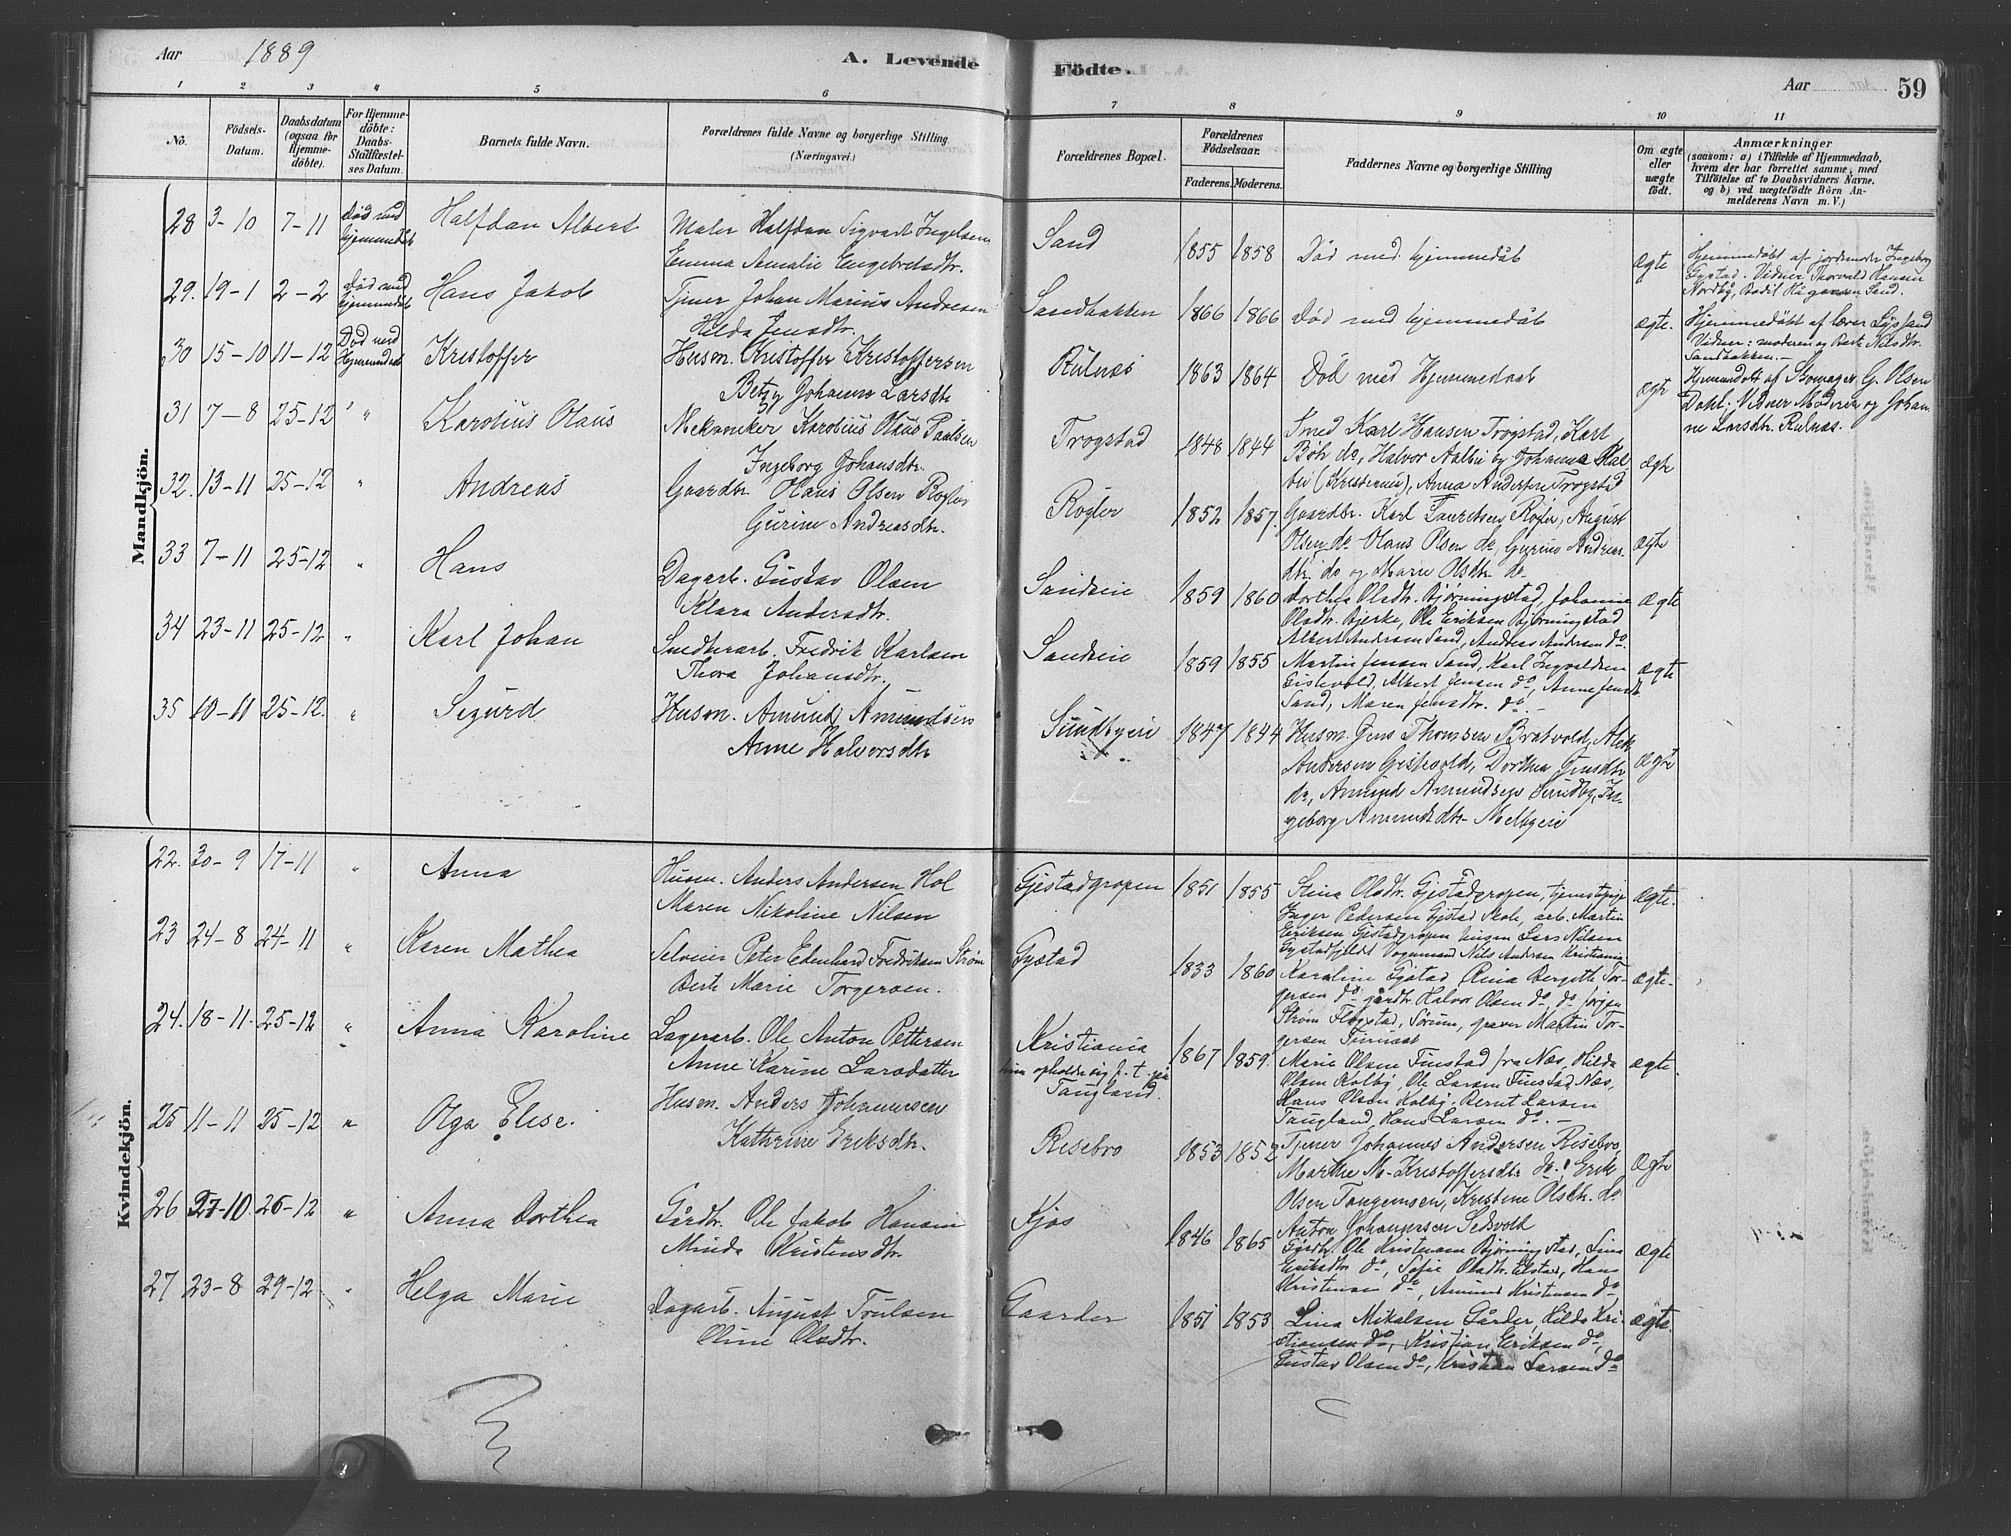 Aar 1889 A. Levende Födte. Aar 59
1 2 3 4 5 6 7 8 9 10 11
No.
Födsels-
Datum.
Daabsdatum
(ogsaa for
Hjemme-
döbte).
For Hjemme-
döbte:
Daabs-
Stadfæstel-
ses Datum.
Barnets fulde Navn.
Forældrenes fulde Navne og borgerlige Stilling
(Næringsvei.)
Forældrenes Bopæl.
Forældrenes
Födselsaar.
Faderens. Moderens.
Faddernes Navne og borgerlige Stilling
Om ægte
eller
uægte
födt.
Anmærkninger
(saasom: a) i Tilfælde af Hjemmedaab,
hvem der har forrettet samme, med
Tilföielse af to Daabsvidners Navne,
og b) ved uægtefödte Börn An-
melderens Navn m. V.)
Mandkjön.
28 3-10 7-11 Död med
hjemmedåb
Halfdan Albert
Maler Halfdan Sigvart Ingelsen
Emma Amalie Engebretsdtr.
Sand
1855 1858
Död med hjemmedåb
ægte
Hjemmedøbt af jordemoder Ingeborg
Gystad. Vidner Thorvald Hansen
Nordby, Bodil Sand.
29. 19-1 2-2 Död med
hjemmedåb
Hans Jakob
Tjener Johan Marius Andresen
Hilda Jensdtr.
Sandbakken
1866 1866
Död med hjemmedåb
ægte.
Hjemmedøbt af lærer
Vidner: moderen og Berte Nilsdtr.
Sandbakken.-
30 15-10 11-12 Död med
Hjemmedaab
Kristoffer
Husm. Kristoffer Kristoffersen
Betzy Johanne Larsdtr
Rulnæs
1863 1864
Död med Hjemmedaab
ægte
Hjemmedøbt af G. Olsen
Dahl. Vidner Moderen og Johan-
ne Larsdtr. Rulnæs.
31 7-8 25-12 " "
Karolius Olaus
Mekaniker Karolius Olaus Paulsen
Ingeborg Johansdtr.
Trogstad
1848 1844
Smed Karl Hansen Trogstad, Karl
Böh do, Halvor Aalbu og Johanna
(Kristiania), Anna Andersen Trogstad
ægte
32. 13-11 25-12 "
Andreas
Gaardbr. Olaus Olsen Rogler
Gurine Andreasdtr.
Rogler
1852 1857.
Gaardbr. Karl Lauritsen Rogler, August
Olsen do Olaus Olsen do, Gurine Andreas-
dtr. do og Marie Olsdtr do
ægte
33 7-11 25-12 "
Hans
Dagarb. Gustav Olsen
Klara Andersdtr.
Sandeie
1859 1860
Dorthea Olsdtr. Bjørningstad, Johanne
Olsdtr. Bjerke, Ole Eriksen Bjørningstad
Albert Andersen Sand, Andreas Andersen do.
ægte
34 23-11 25-12 "
Karl Johan
Snedkerarb. Fredrik Karlsen
Thora Johansdtr.
Sandeie
1859 1855
Martin Jensen Sand, Karl Ingvaldsen
Gistevold, Albert Jensen do, Anne Jensdtr
Sand, Maren Jensdtr. do.-
ægte
35 10-11 25-12. "
Sigurd
Husm. Amund Amundsen
Anne Halvorsdtr
Sundbyeie
1847 1844
Husm. Jens Thomsen Bratvold, Alek
Andersen Gistevold, Dorthea Jensdtr
do, Amund Amundsen Sundby, In-
geborg Amundsdtr Melbyeie
ægte
Kvindekjön.
22. 30-9 17-11 "
Anna
Husm. Anders Andersen Hol
Maren Nikoline Nilsen
Gjestadgropen
1851 1855
Stina Olsdtr. Gjestadgropen, tjenestepige
Inger Pedersen Gjstad Skole, arb. Martin
Eriksen Gjestadgropen Lars Nilsen
Gystadfjeldt Vognmand Nils Andersen Kristiania
ægte.
23 24-8 24-11 "
Karen Mathea
Selveier Peter Edenhard Fredriksen Strøm
Berte Marie Torgersen.
Gystad
1833 1860
Karoline Gjstad, Rina Bergitte Tor-
gersen do gårdbr. Halvor Olsen do do Jörgen
Strøm Flogstad, Sørum, graver Martin Tor-
gersen
ægte.
24. 18-11. 25-12 "
Anna Karoline
Lagerarb. Ole Anton Pettersen
Anne Karine Larsdatter
Kristiania
opholder sig f. t. på
Taugland.
1867 1859.
Marie Olsen Finstad fra Næs, Hilda
Olsen Kolby, Ole Larsen Finstad, Næs,
Hans Olsen Kolby. Bernt Larsen
Taugland, Hans Larsen do.-
ægte.
25 11-11 25-12 "
Olga Elise.
Husm. Anders Johannesen
Kathrine Eriksdtr.
Risebro
1853 1852
Tjener Johannes Andersen Risebro,
Marthe M. Kristoffersdtr do, Erik
Olsen Tangensen, Kristine Olsdtr. do
Anton Johannesen Sedsvold
ægte
26 27-10. 26-12 "
Anna Dorthea
Gårdbr. Ole Jakob Hansen
Minda Kristensdtr.
Kjos
1846 1865
Gårdbr. Ole Kristensen Bjørningstad, Lina
Eriksdtr do, Sofie Olsdtr. Elstad, Hans
Kristensen do, Amund Kristensen do
ægte
27 23-8 29-12 "
Helga Marie
Dagarb. August Trulsen
Oline Olsdtr.
Gaarder
1851 1853
Lina Mikalsen Gårder, Hilda Kri-
stiansen do, Kristian Eriksen do,
Gustav Olsen do, Kristian Larsen do
ægte.